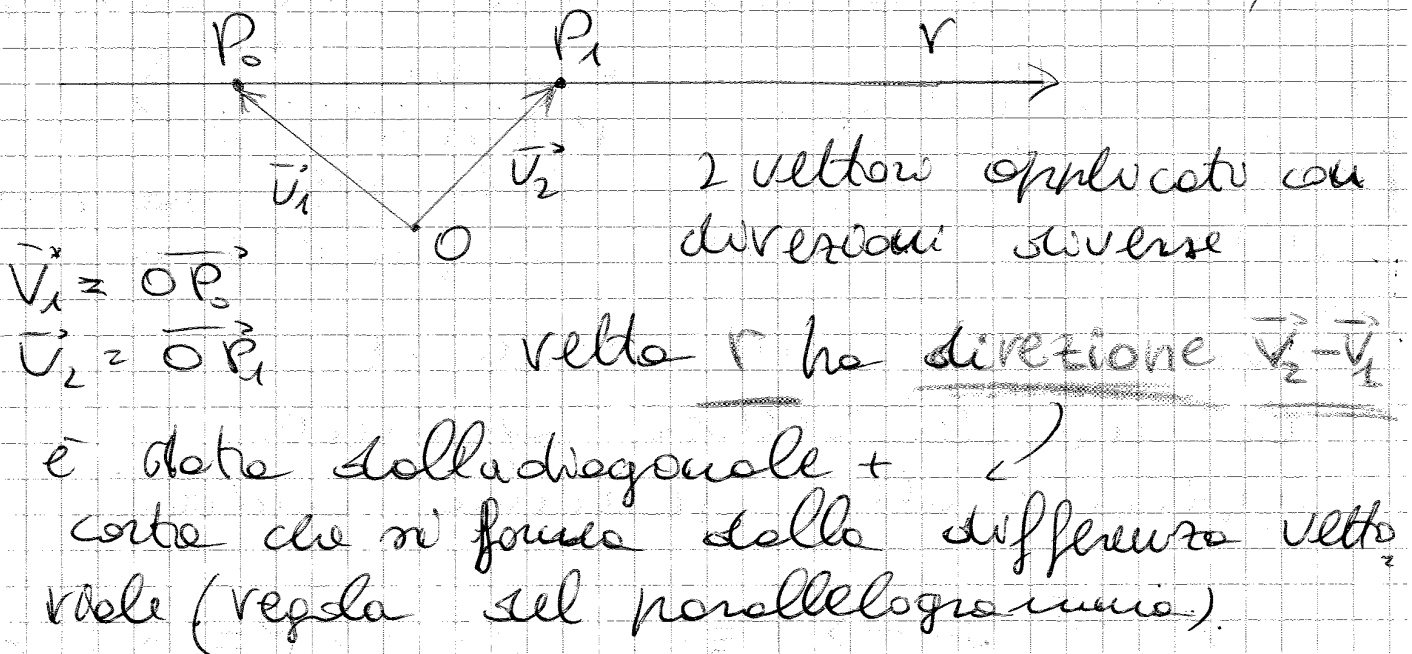 P₀ P₁ r
V⃗₁ V⃗₂ 2 vettori applicati con
O direzioni diverse
V⃗₁ = OP₀
V⃗₂ = OP₁ retta r ha direzione V⃗₂-V⃗₁
è data dalla diagonale +
corta che si forma dalla differenza vetto
riale (regola del parallelogramma).